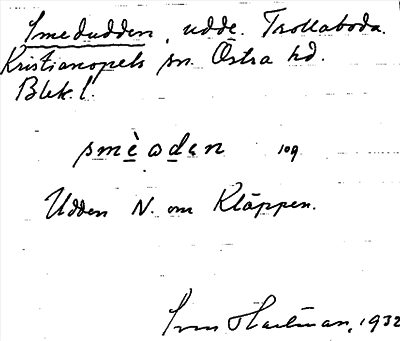 Smedudden, udde. Trollaboda.
Kristianopels sn. Östra hd.
Blek. l.
smèaden 109
Udden N. om Kläppen.
Sven Hartman, 1932